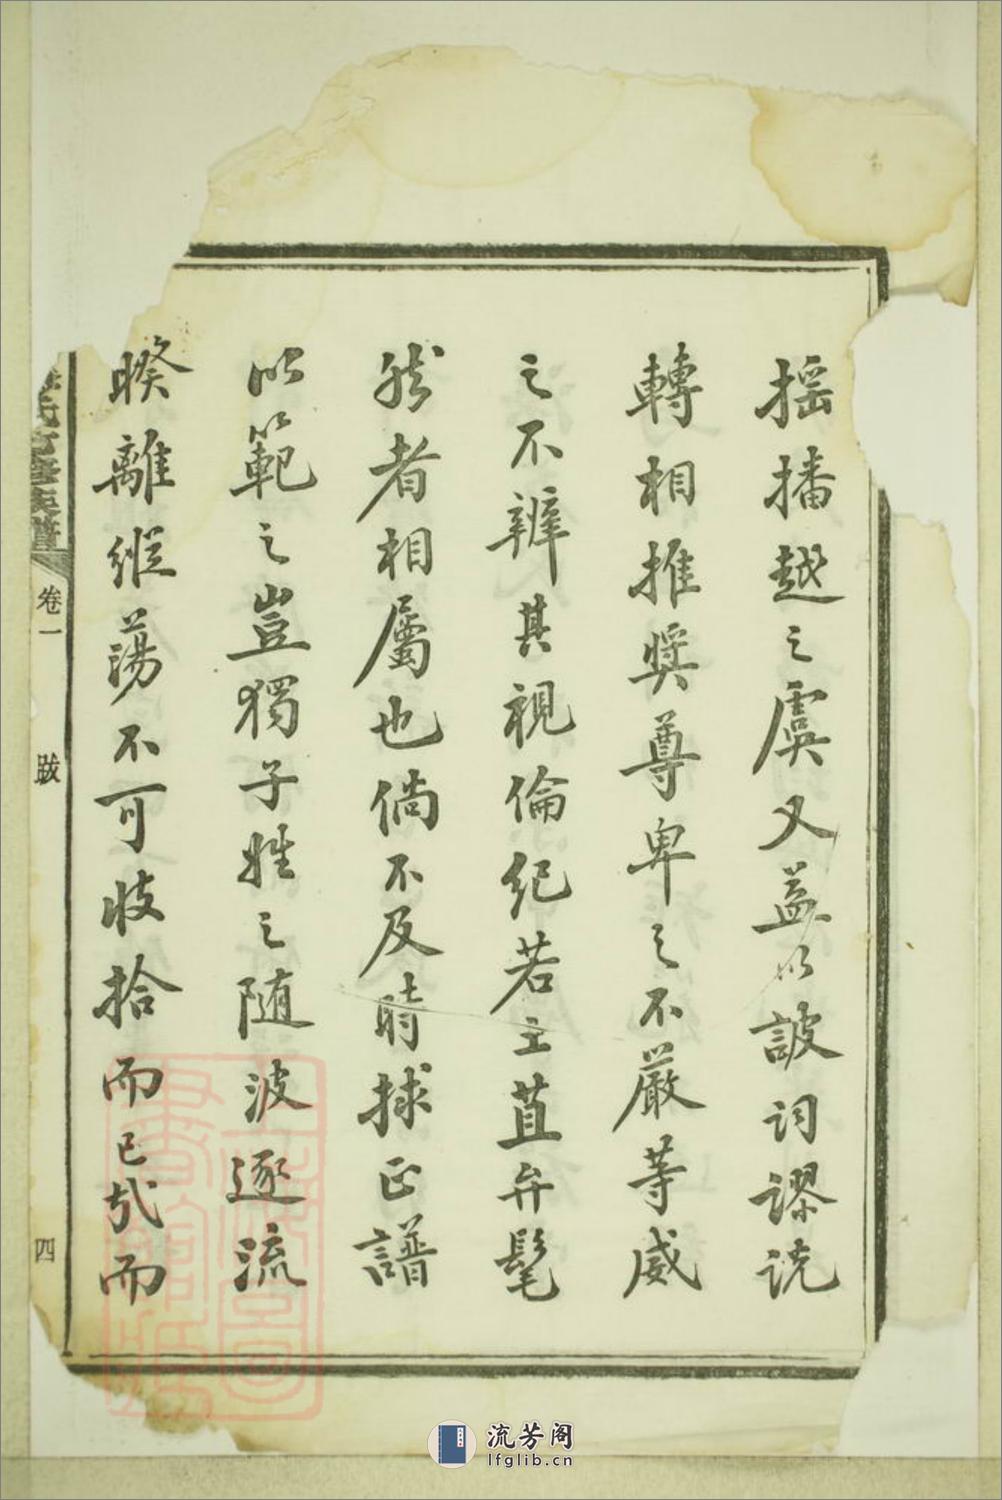 搖播越之虞又益以詖詞謬说
轉相推奨尊卑之不嚴等威
之不辨其視倫紀若土苴弁髦
然者相屬也倘不及時捄正譜
以範之豈獨子姓之随波逐流
暌離縱蕩不可收拾而已哉而
氏六修族譜
卷一
跋
四
流芳阁
lfglib.cn